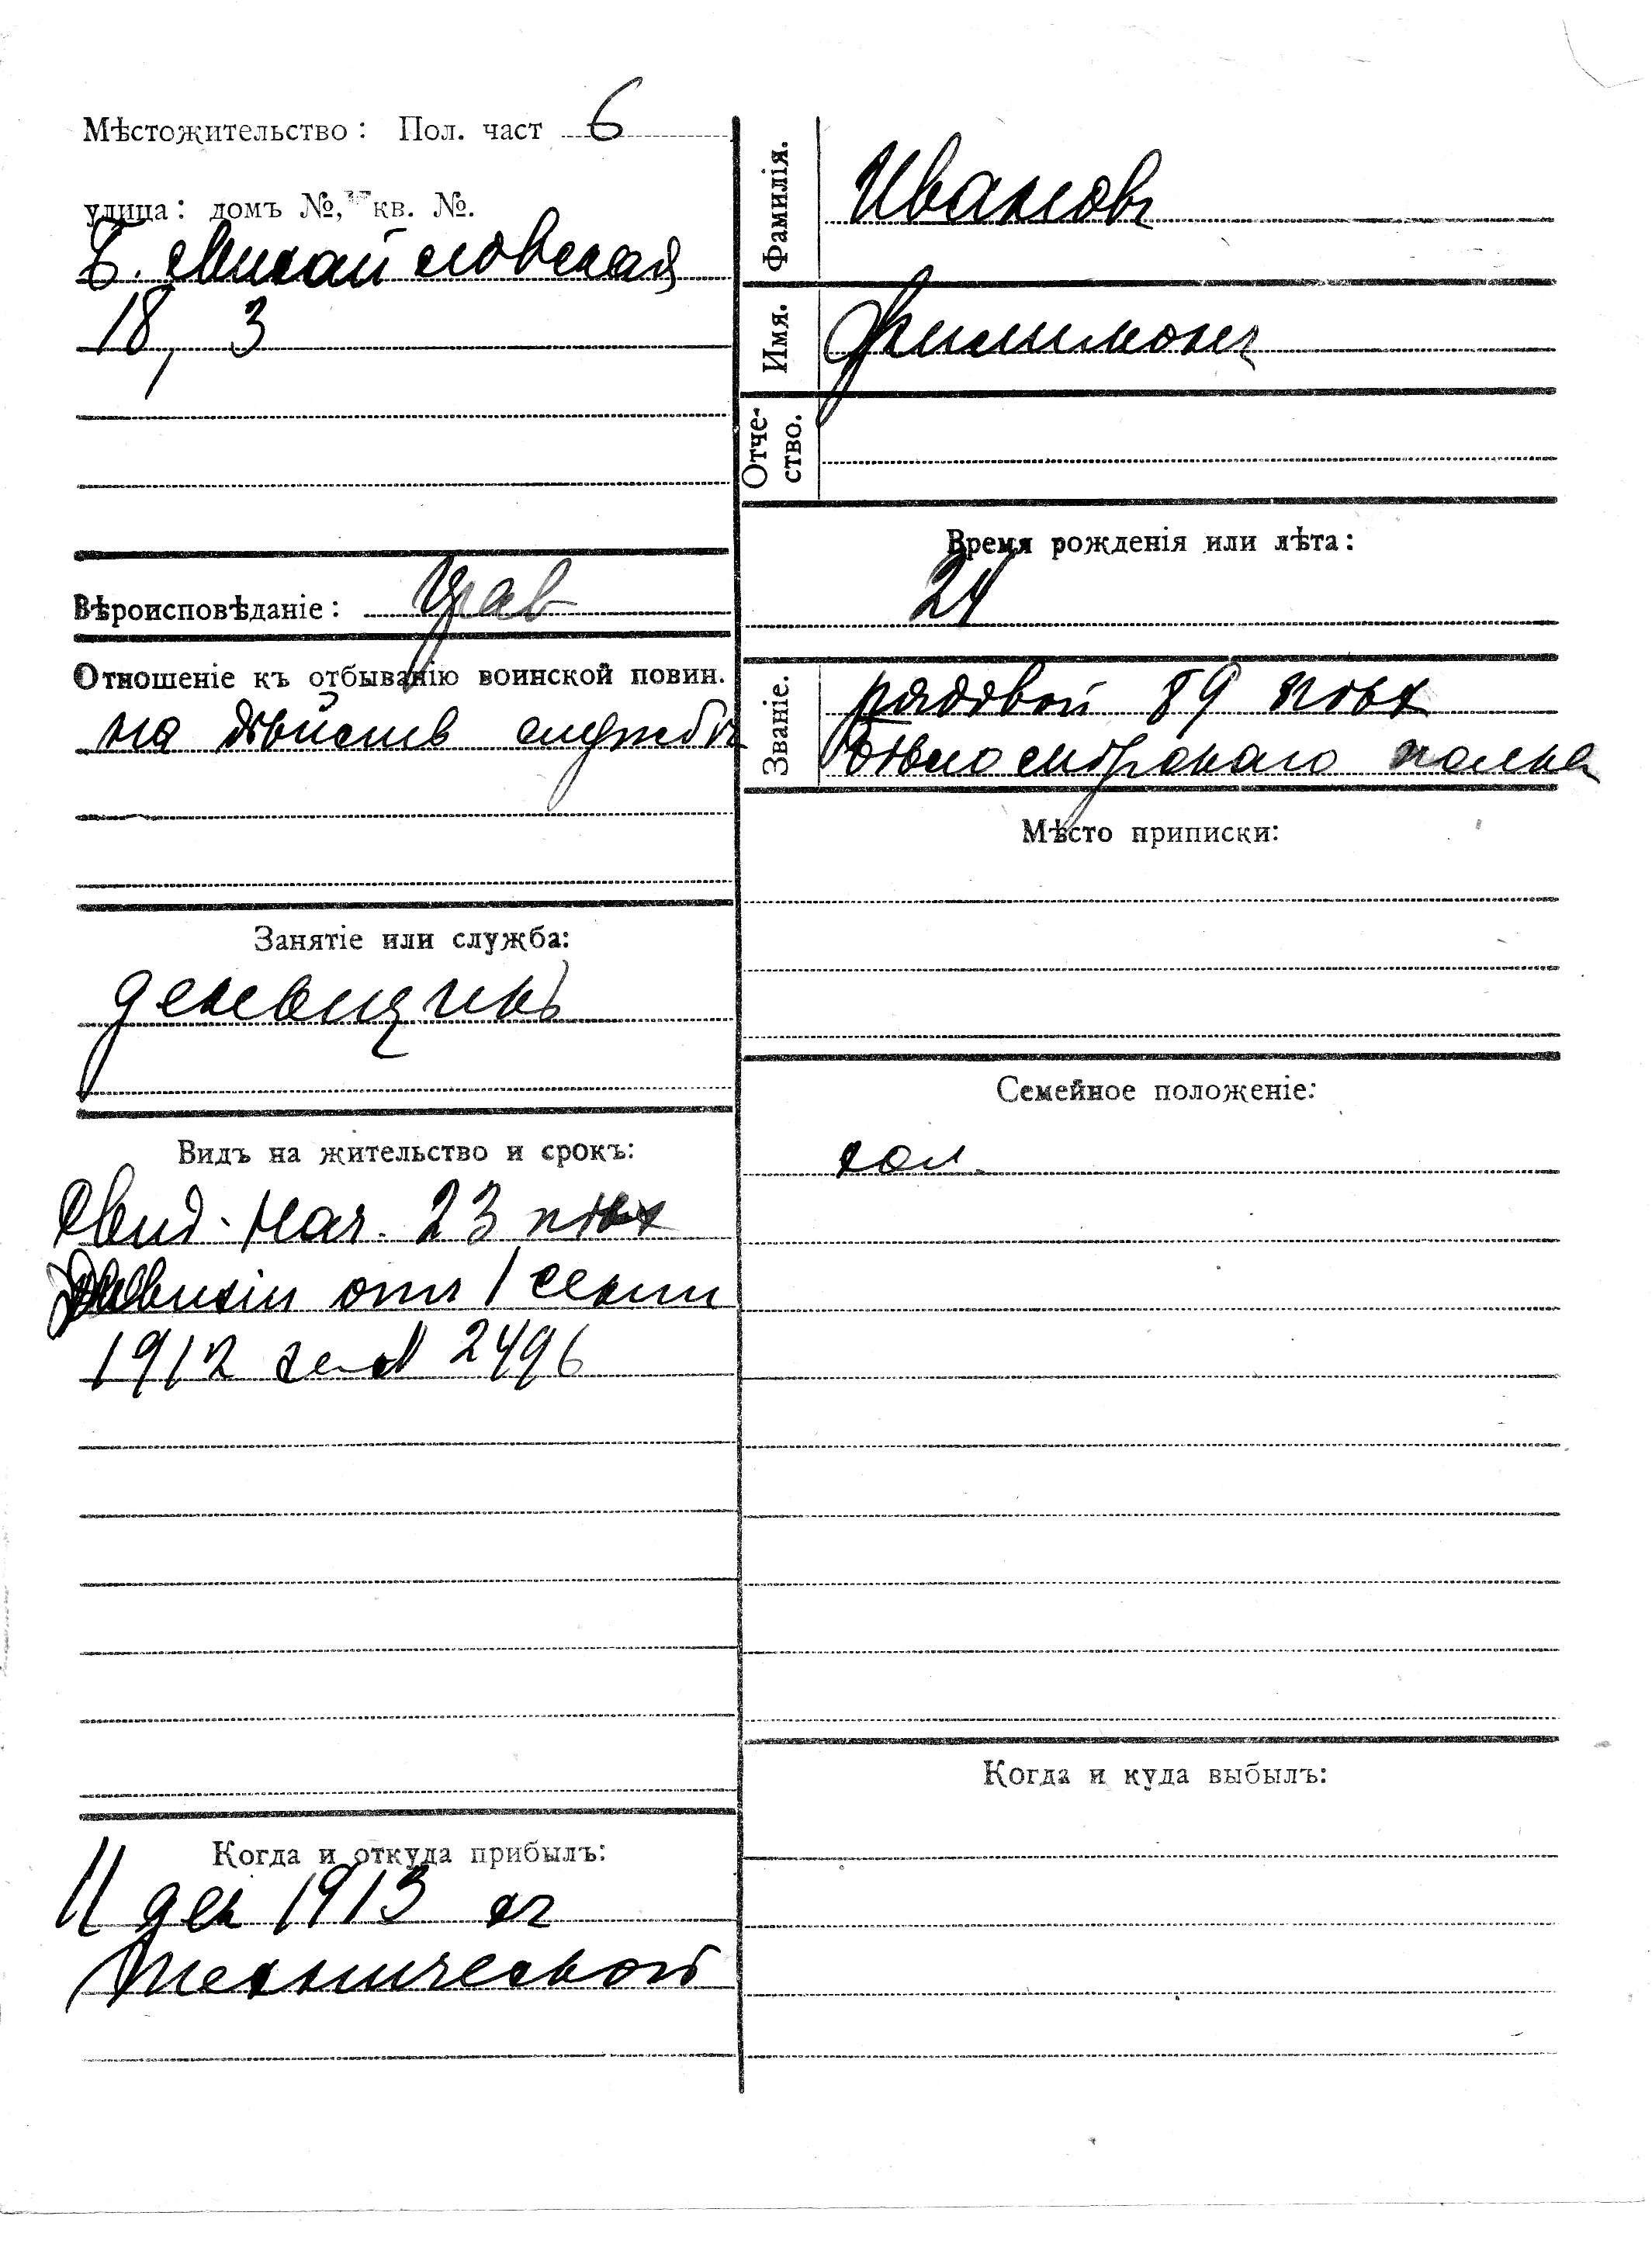 Мѣстожительство: Пол. част 6
улица: домъ №, кв. №.
Б. Михайловская
18, 3
Вѣроисповѣданіе: прав
Отношеніе къ отбыванію воинской повин.
на дѣйств службѣ
Занятіе или служба:
денщикъ
Видъ на жительство и срокъ:
Свид. Нач. 23 пѣх
Дивизіи отъ 1 сент
1912 за № 2496
Когда и откуда прибылъ:
11 дек 1913 съ
Технической
Фамилія. Ивановъ
Имя. Филимонъ
Отче-
ство.
Время рожденія или лѣта:
24
Званіе. рядовой 89 пѣх
Бѣломорскаго полка
Мѣсто приписки:
Семейное положеніе:
хол.
Когда и куда выбылъ: